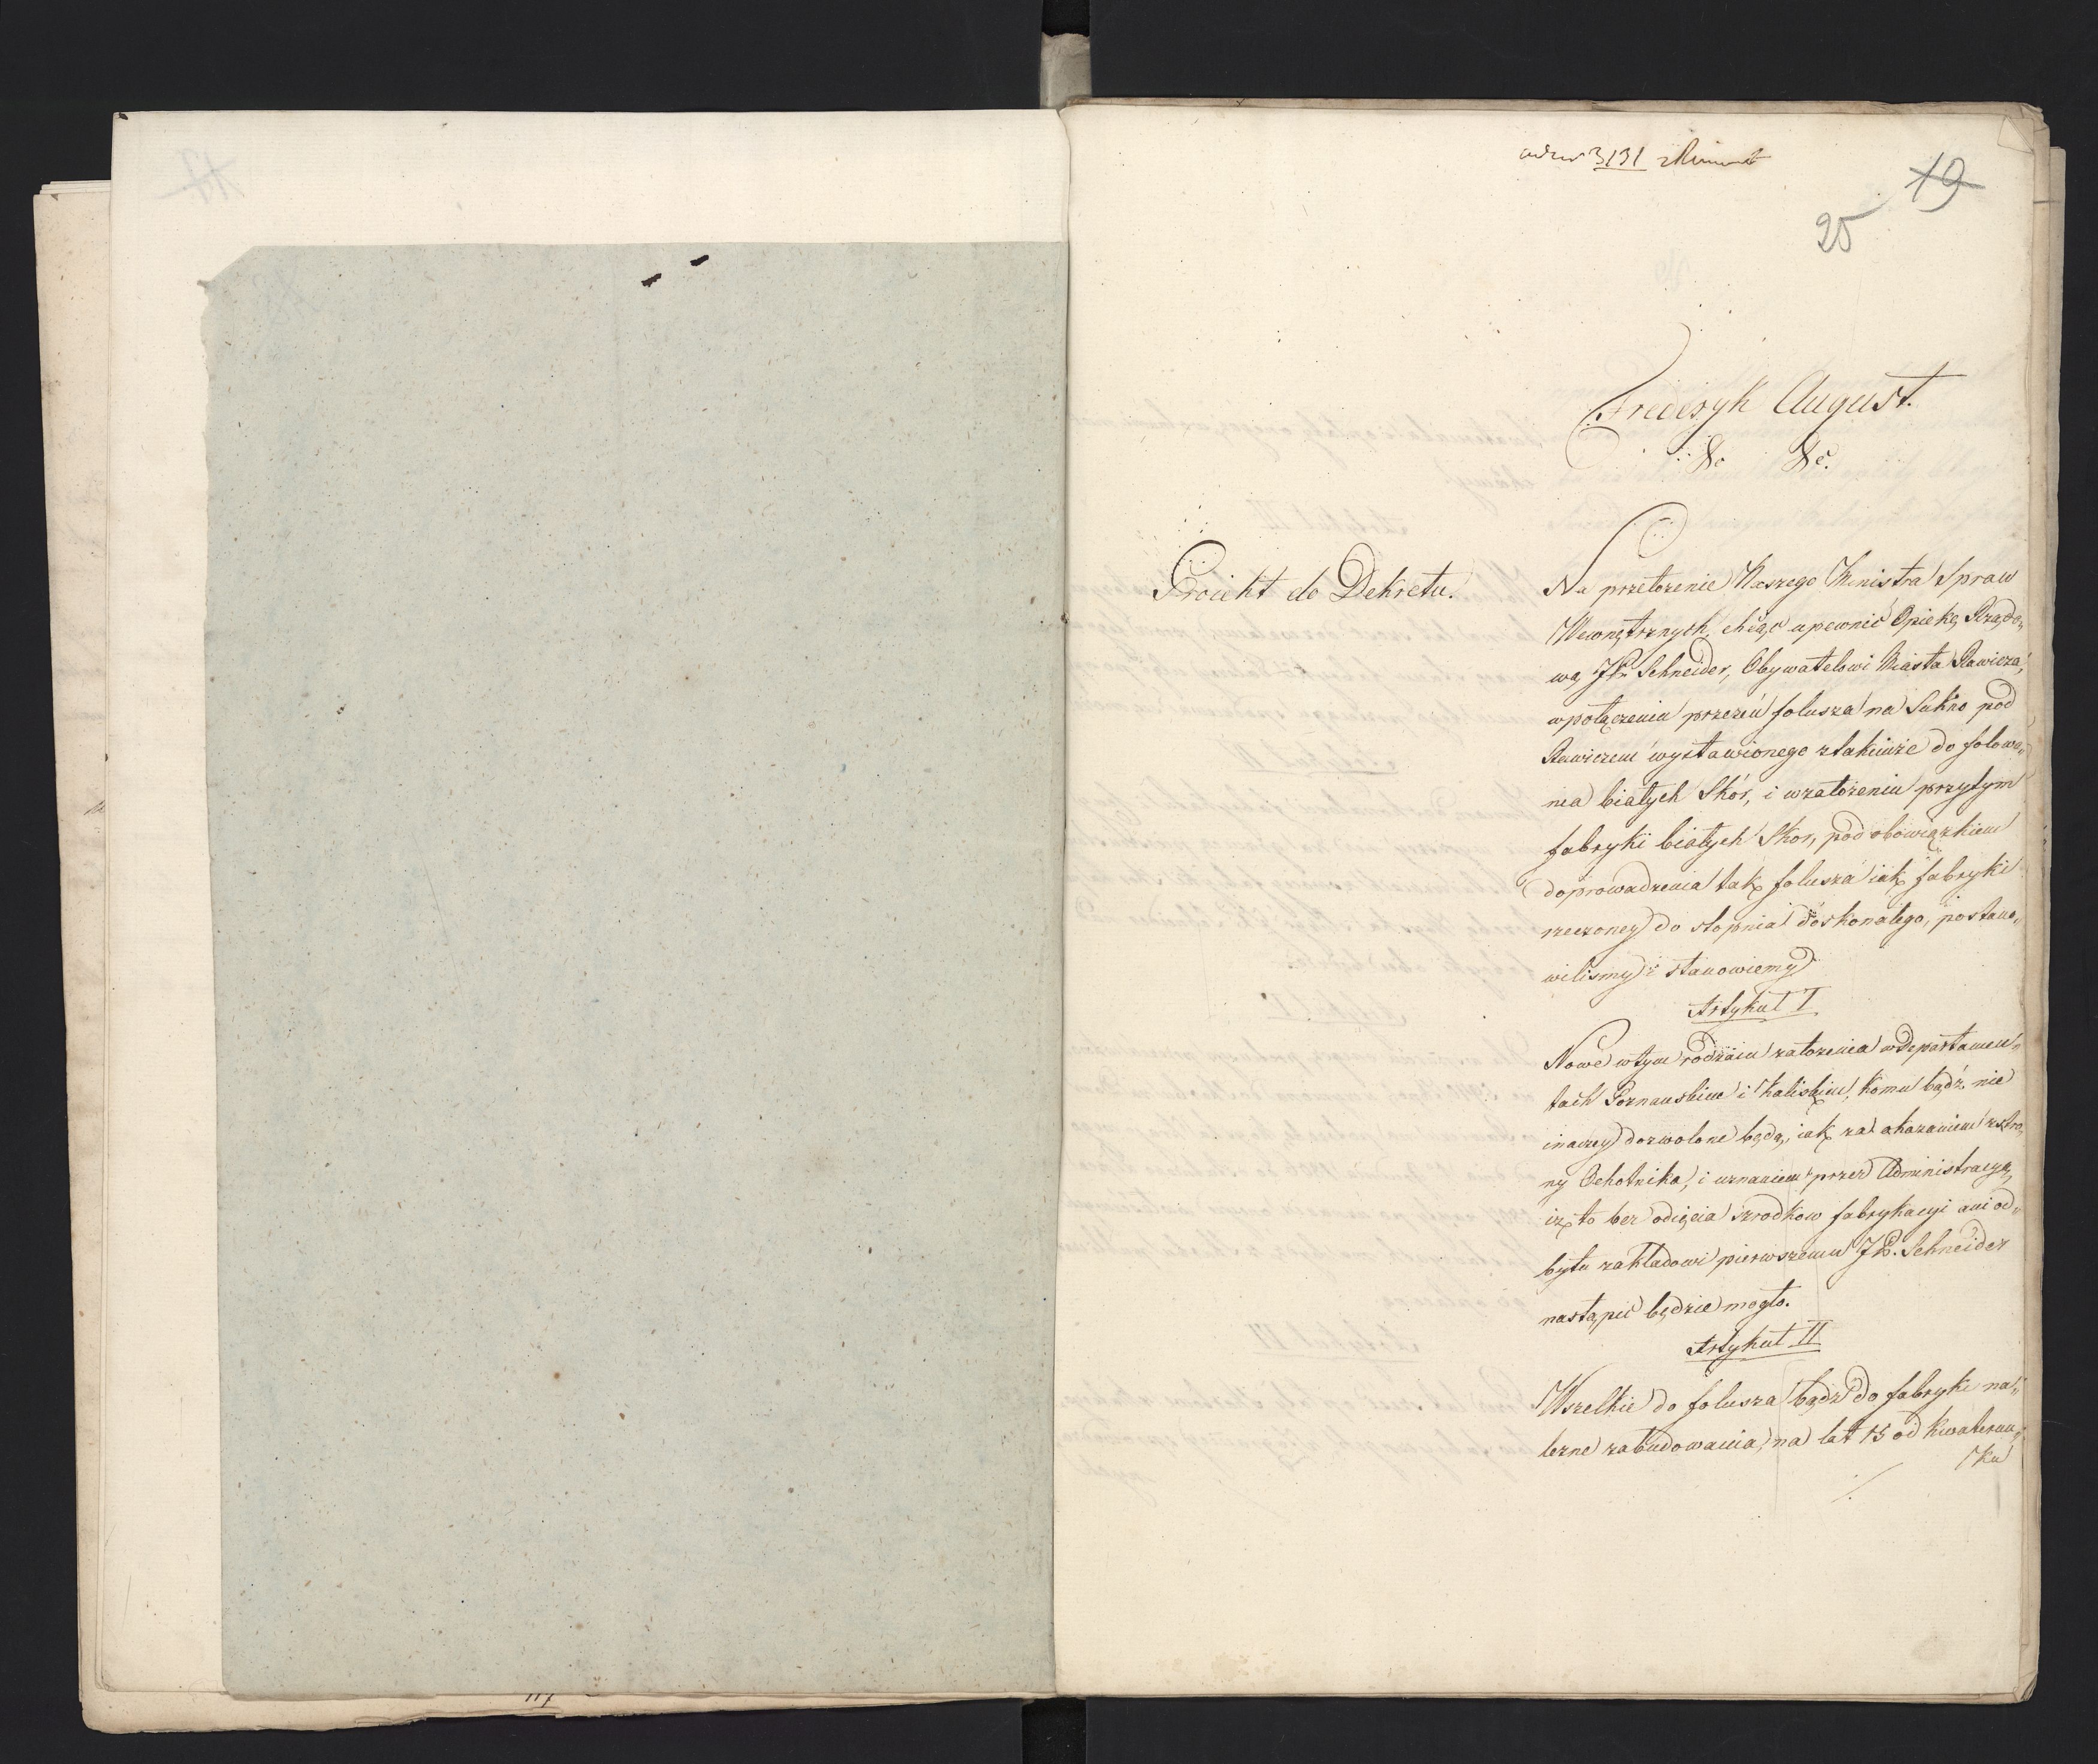 3131
19
25
Frideryk August.
&c &c.
Proiekt do Dekretu.
Na przełożenie Naszego Ministra Spraw
Wewnętrznych, chcąc upewnić Opiekę Rządo„
wą JP. Schneider, Obywatelowi Miasta Rawicza,
w połączeniu przezeń folusza na Sukno pod
Rawiczem wystawionego ztakimże do folowa„
nia białych Skór, i wzałożeniu przytym
fabryki białych Skor, pod obowiązkiem
doprowadzenia tak folusza iak fabryki
rzeczoney do stopnia doskonałego, postano„
wilismy i stanowiemy
Artykuł I
Nowe wtym rodzaiu założenia w Departamen„
tach Poznanskim i Kaliskim, komu bądź nie
inaczey dozwolone będą, iak za okazaniem zstro„
ny Ochotnika, i uznaniem przez Administracyą,
iż to bez odięcia srzodkow fabrykacyi ani od„
bytu zakładowi pierwszemu JP. Schneider
nastąpić będzie mogło.
Artykuł II
Wszelkie do folusza bądź do fabryki na„
leżne zabudowania, na lat 15 od kwaterun„
ku